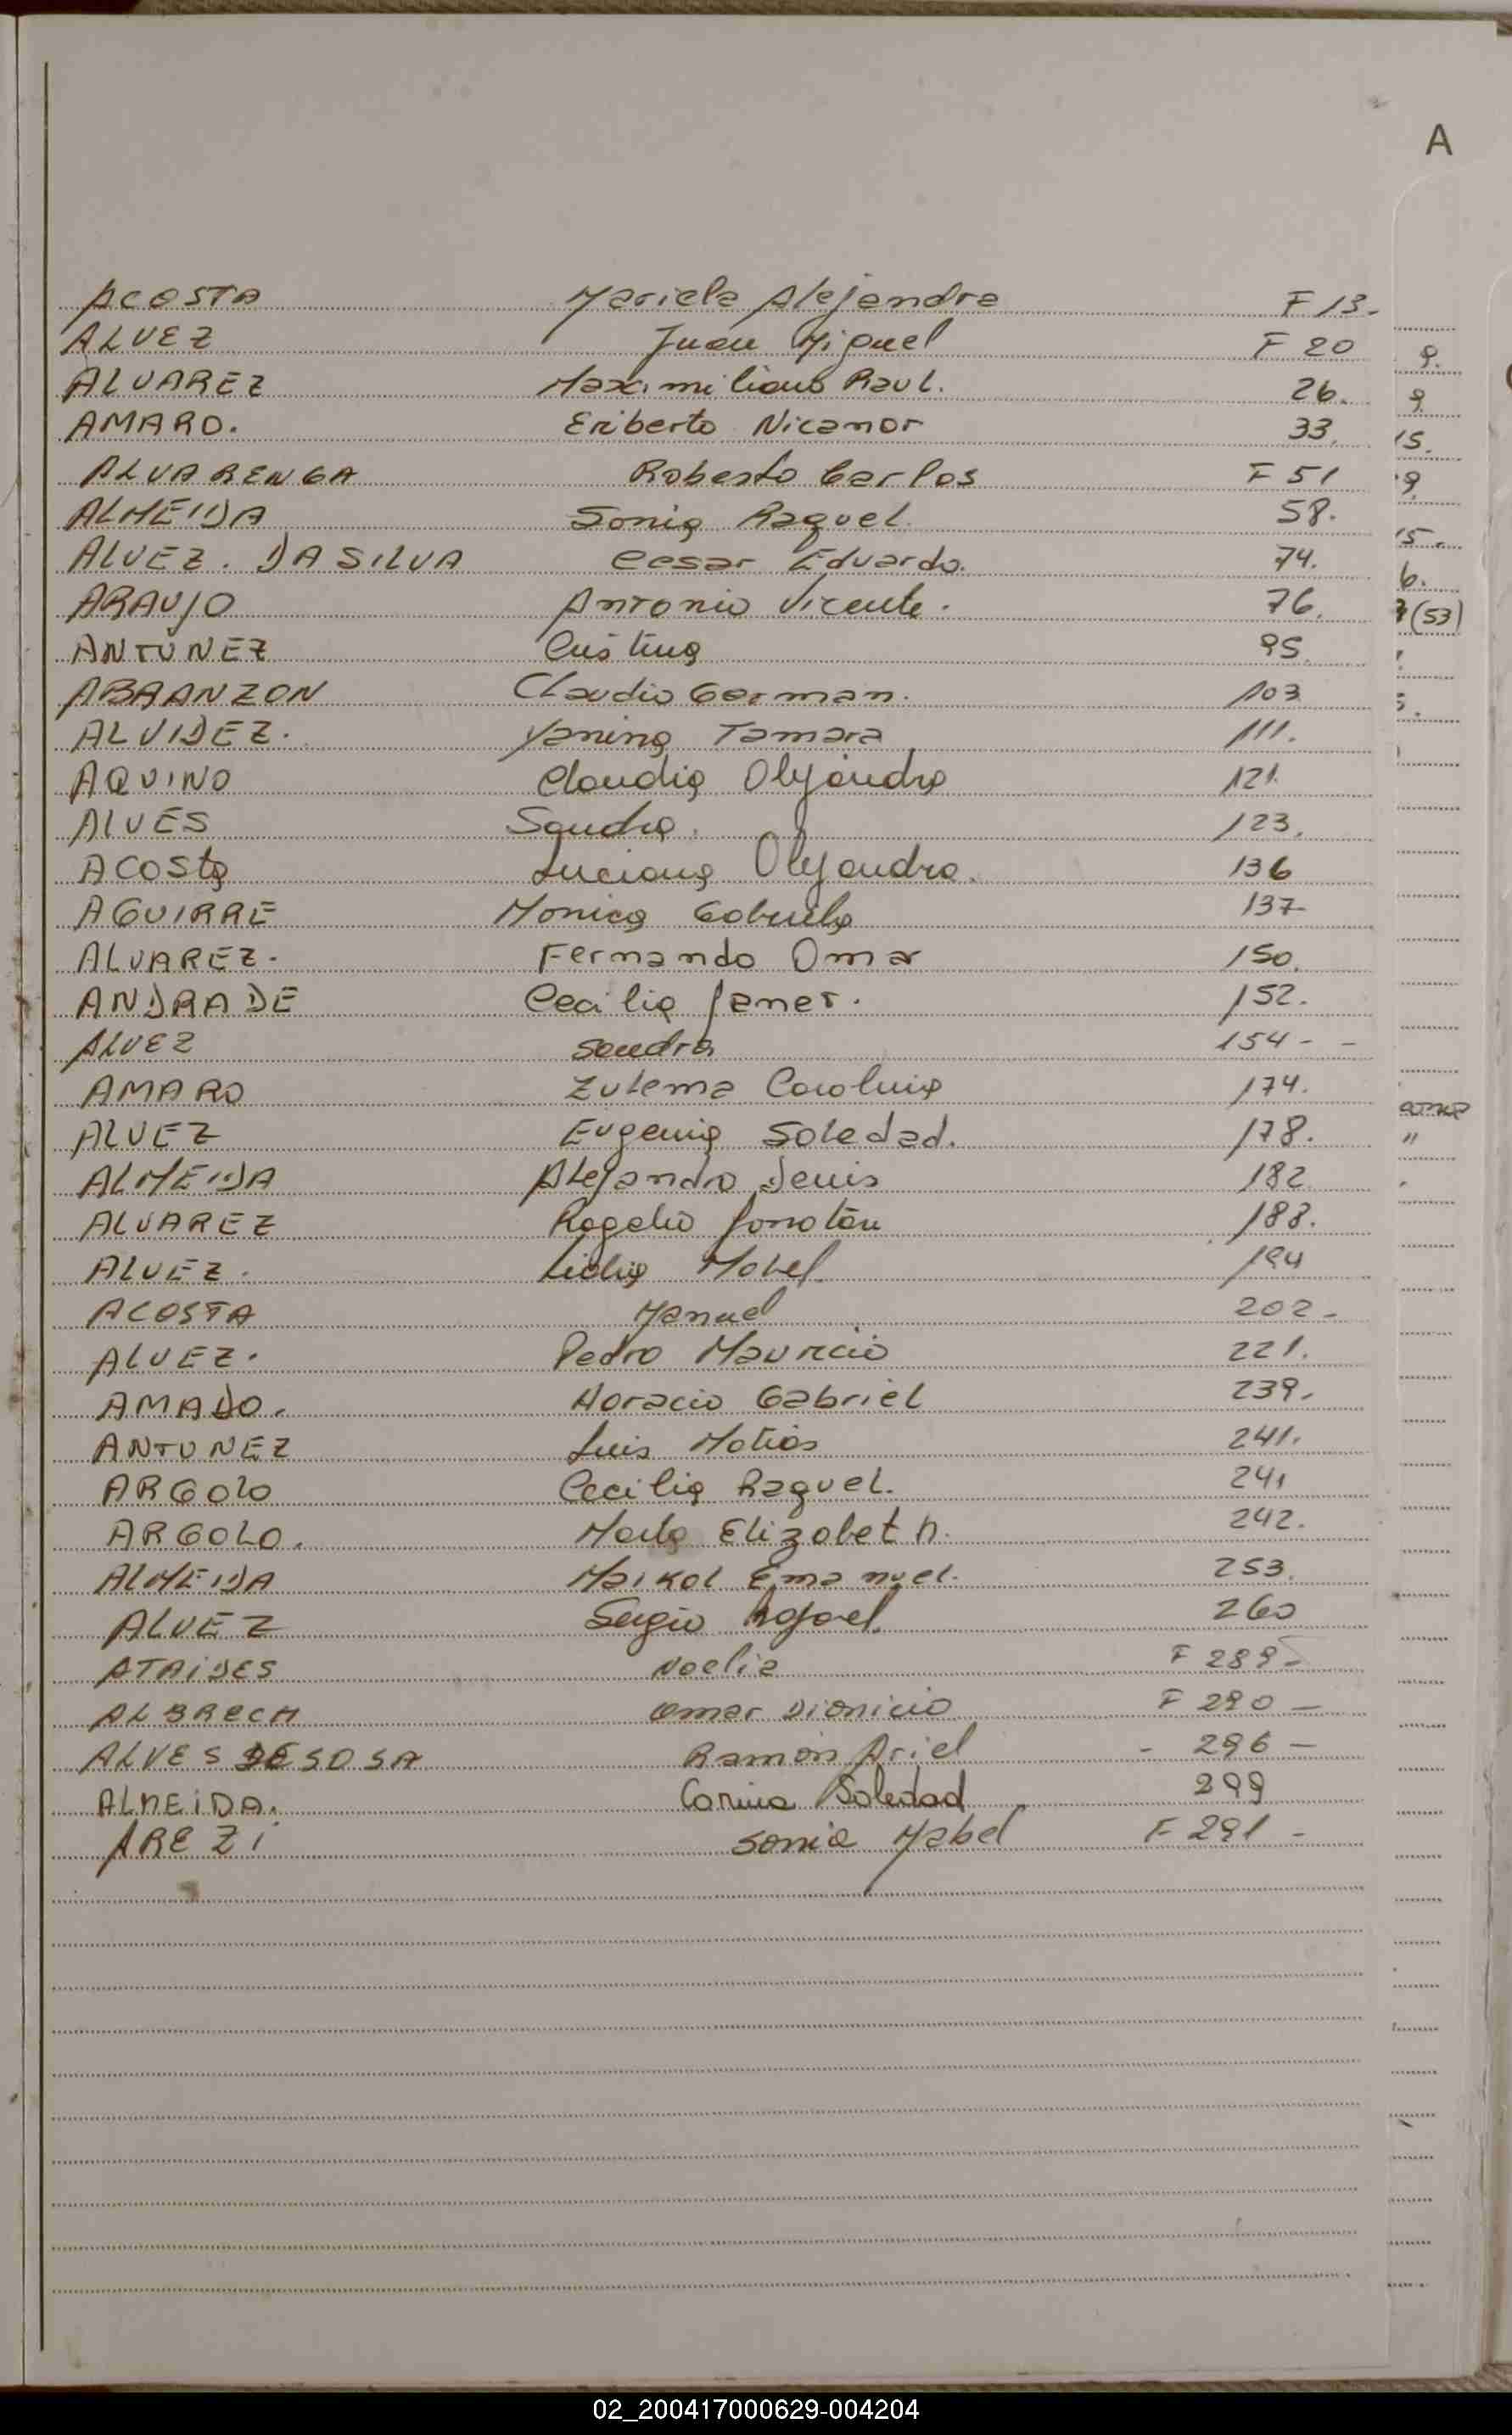 A
ACOSTA Mariela Alejandra F 13.-
ALVEZ Juan Miguel F 20
ALVAREZ Maximiliano Raul. 26.
AMARO. Eriberto Nicanor 33.
ALVARENGA Roberto Carlos F 51
ALMEIDA Sonia Raquel. 58.
ALVEZ. DA SILVA Cesar Eduardo. 74.
ARAUJO Antonio Vicente. 76.
ANTUNEZ Cristina 95.
ABRANZON Claudio German. 103
ALVIDEZ. Yanina Tamara 111.
AQUINO Claudia Alejandra 121.
ALVES Sandra. 123.
ACOSta Luciana Alejandra. 136
AGUIRRE Monica Gabriela 137-
ALVAREZ. Fernando Omar 150.
ANDRADE Cecilia Janet. 152.
ALVEZ Sandra 154- -
AMARO Zulema Carolina 174.
ALVEZ Eugenia Soledad. 178.
ALMEIDA Alejandro Denis 182.
ALVAREZ Rogelio Jonatán 188.
ALVEZ. Lidia Mabel. 194
ACOSTA Manuel 202-
ALVEZ. Pedro Mauricio 221.
AMADO. Horacio Gabriel 239.
ANTUNEZ Luis Matias 241.
ARGOLO Cecilia Raquel. 241
ARGOLO. Elizabeth. 242.
ALMEIDA Maikol Emanuel. 253.
ALVEZ Sergio Rafael. 260
ATAIDES Noelia F 289-
ALBRECH Omar Dionicio F 290 -
ALVES DE SOSA Ramón Ariel - 296 -
ALMEIDA. Carina Soledad 299
AREZi Sonia Mabel F 291 -
9.
9
15.
9.
15.
6.
(53)
"
02_200417000629-004204